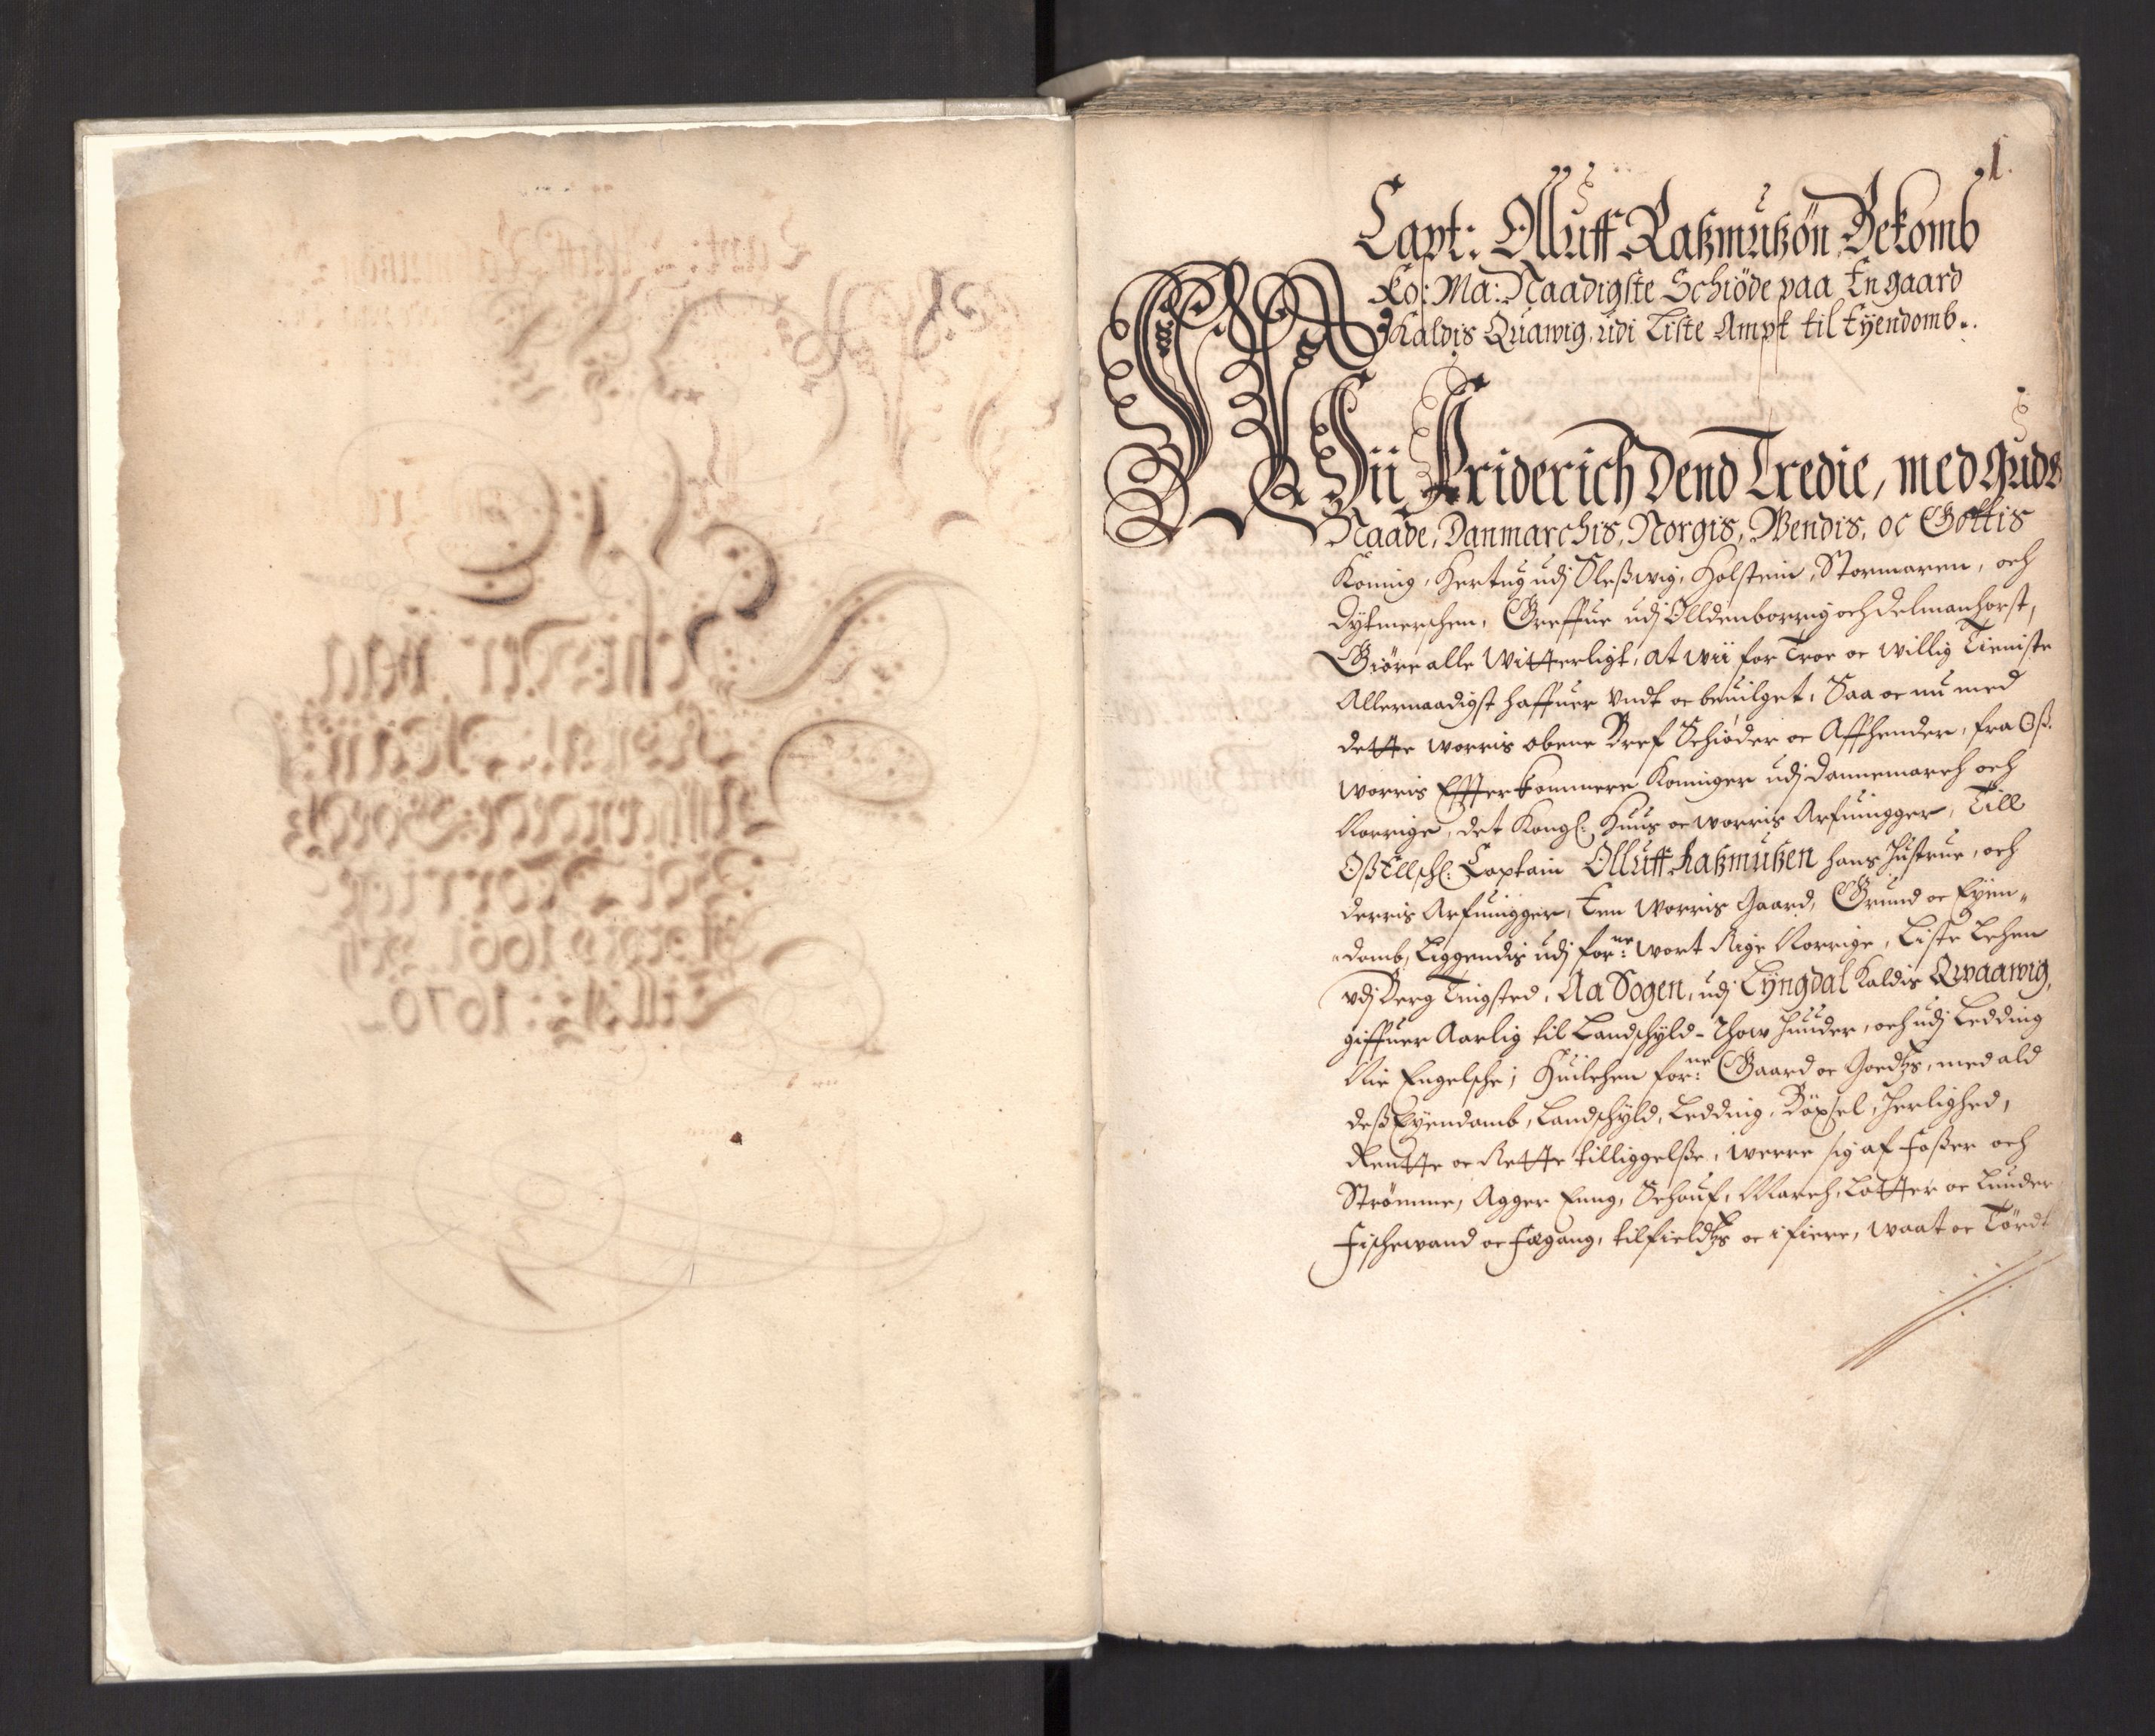 1.
Capt: Olluff Raßmußön Bekomb
Ko: Ma: Naadigste Schiöde paa En gaard
Kaldis Quawig, udi Liste Ampt til Eyendomb..
Wii Friderich Dend Tredie, med Guds
Naade, Danmarchis, Norgis, Wendis, oc Gottis
Koning, Hertug udj Sleßwig, Holstein, Stormaren, och
Dytmerschen, Greffue udj Olldenborrig och Delmanhorst,
Giöre alle Witterligt, at wii for Troe oc willig Tieniste
Allernaadigst haffuer undt oc beuilget, Saa oc nu med
dette worris obene Bref Schiöder oc Affhender, fra Oß
worris Effterkommere Koninger udj Dannemarch och
Norrige, det Kongl: Huus oc worris Arfuingger, Till
Oß Elschl: Captain Olluff Raßmußen hans Hustrue, och
derris Arfuingger, Een Worris Gaard, Grund oc Eyen„
„domb, Liggendis udj forne: wort Rige Norrige, Liste Lehen
udj Berg Tingsted, Aa Sogen, udj Lyngdal Kaldis Qwaawig,
giffuer Aarlig til Landschyld - Thow Huuder, och udj Ledding
Nie Engelsche; Huilchen forne: Gaard oc Goedtzs, med ald
deß Eyendomb, Landschyld, Ledding, Böxsel, Herlighed,
Rentte oc Rette tilliggelße, werre sig af Foßer och
Strömme, Agger Eng, Schouf, March, Lotter oc Lunder
Fischewand oc Fægang, til fieldtzs oc i fiere, waat oc Tördt
Schiöder paa
Kronens
Norrige
1661 och
till Aº: 1670